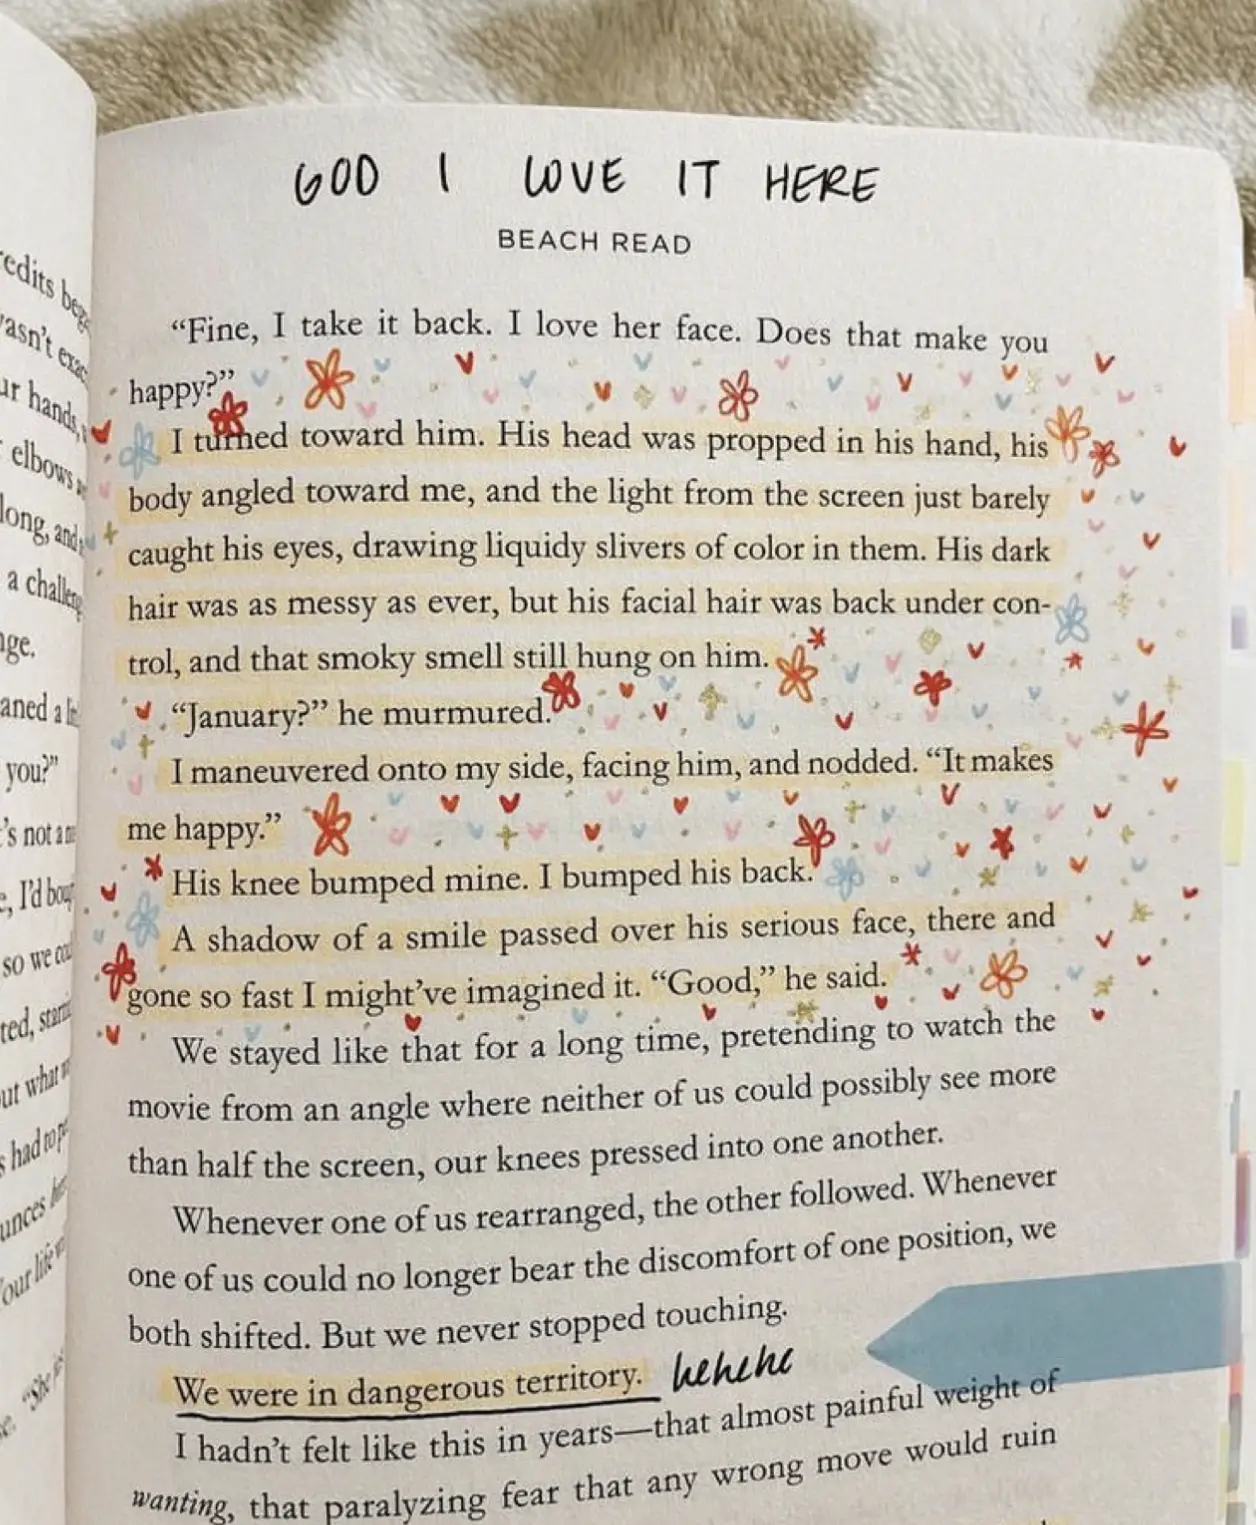 GOD I LOVE IT HERE
BEACH READ
“Fine, I take it back. I love her face. Does that make you
happy?”
I turned toward him. His head was propped in his hand, his
body angled toward me, and the light from the screen just barely
caught his eyes, drawing liquidy slivers of color in them. His dark
hair was as messy as ever, but his facial hair was back under con-
trol, and that smoky smell still hung on him.
“January?” he murmured.
I maneuvered onto my side, facing him, and nodded. “It makes
me happy.”
His knee bumped mine. I bumped his back.
A shadow of a smile passed over his serious face, there and
gone so fast I might’ve imagined it. “Good,” he said.
We stayed like that for a long time, pretending to watch the
movie from an angle where neither of us could possibly see more
than half the screen, our knees pressed into one another.
Whenever one of us rearranged, the other followed. Whenever
one of us could no longer bear the discomfort of one position, we
both shifted. But we never stopped touching.
We were in dangerous territory. hehehe
I hadn’t felt like this in years—that almost painful weight of
wanting, that paralyzing fear that any wrong move would ruin